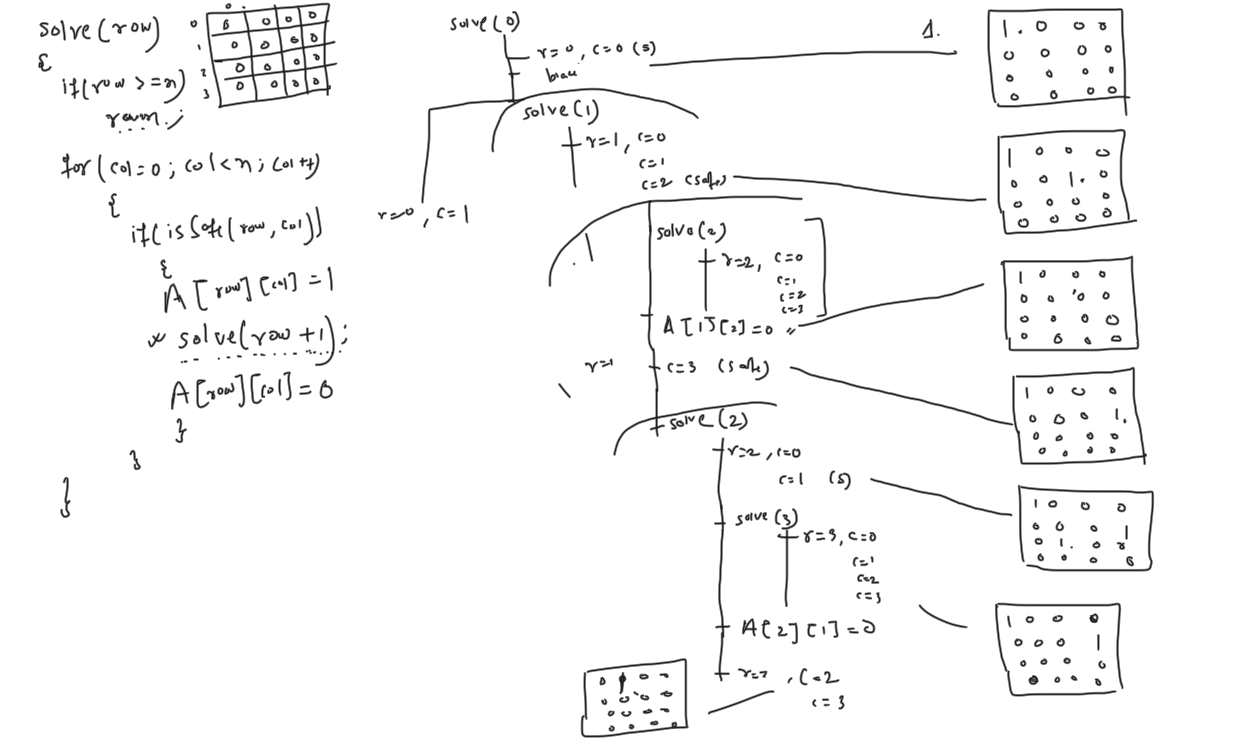 solve(row)
{
if(row >= n)
return;
for(col=0; col<n; col++)
{
if(isSafe(row, col))
{
A[row][col]=1
* solve(row+1);
A[row][col]=0
}
}
}
0
1
2
3
0 0 0 0
0 0 0 0
0 0 0 0
0 0 0 0
solve(0)
r=0, c=0 (s)
solve(1)
r=1, c=0
c=1
c=2 (safe)
r=0, c=1
solve(2)
r=2, c=0
c=1
c=2
c=3
A[1][2]=0
r=1
c=3 (safe)
solve(2)
r=2, c=0
c=1 (s)
solve(3)
r=3, c=0
c=1
c=2
c=3
A[2][1]=0
r=2, c=2
c=3
0 1 0 0
0 0 0 0
0 0 0 0
0 0 0 0
1.
1. 0 0 0
0 0 0 0
0 0 0 0
0 0 0 0
1 0 0 0
0 0 1. 0
0 0 0 0
0 0 0 0
1 0 0 0
0 0 0 0
0 0 0 0
0 0 0 0
1 0 0 0
0 0 0 1.
0 0 0 0
0 0 0 0
1 0 0 0
0 0 0 1
0 1. 0 0
0 0 0 0
1 0 0 0
0 0 0 1
0 0 0 0
0 0 0 0